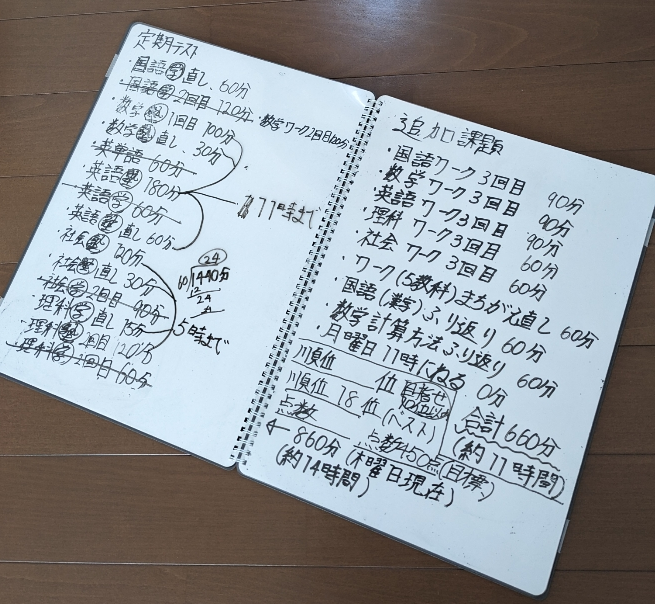 定期テスト
・国語㊫直し、60分
・国語 2回目 120分
・数学 1回目 100分
・数学ワーク2回目100分
・数学 直し、30分
・英単語 60分
・英語 180分
・英語㊫ 60分
・英語 直し 60分
11時まで
・社会 120分
・社会 直し 30分
・社会㊫2回目 90分
・理科㊫直し 15分
・理科 1回目 120分
・理科 2回目 60分
5時まで
24
60 1440分
12
24
追加課題
・国語ワーク3回目 90分
・数学ワーク3回目 90分
・英語ワーク3回目 90分
・理科ワーク3回目 60分
・社会ワーク3回目 60分
・ワーク(5教科)まちがえ直し 60分
・国語(漢字)ふり返り 60分
・数学計算方法ふり返り 60分
・月曜日11時にねる 0分
合計660分
(約11時間)
順位 位
目指せ
10位以内
順位 18位(ベスト)
点数 点数450点(目標)
←860分(木曜日現在)
(約14時間)